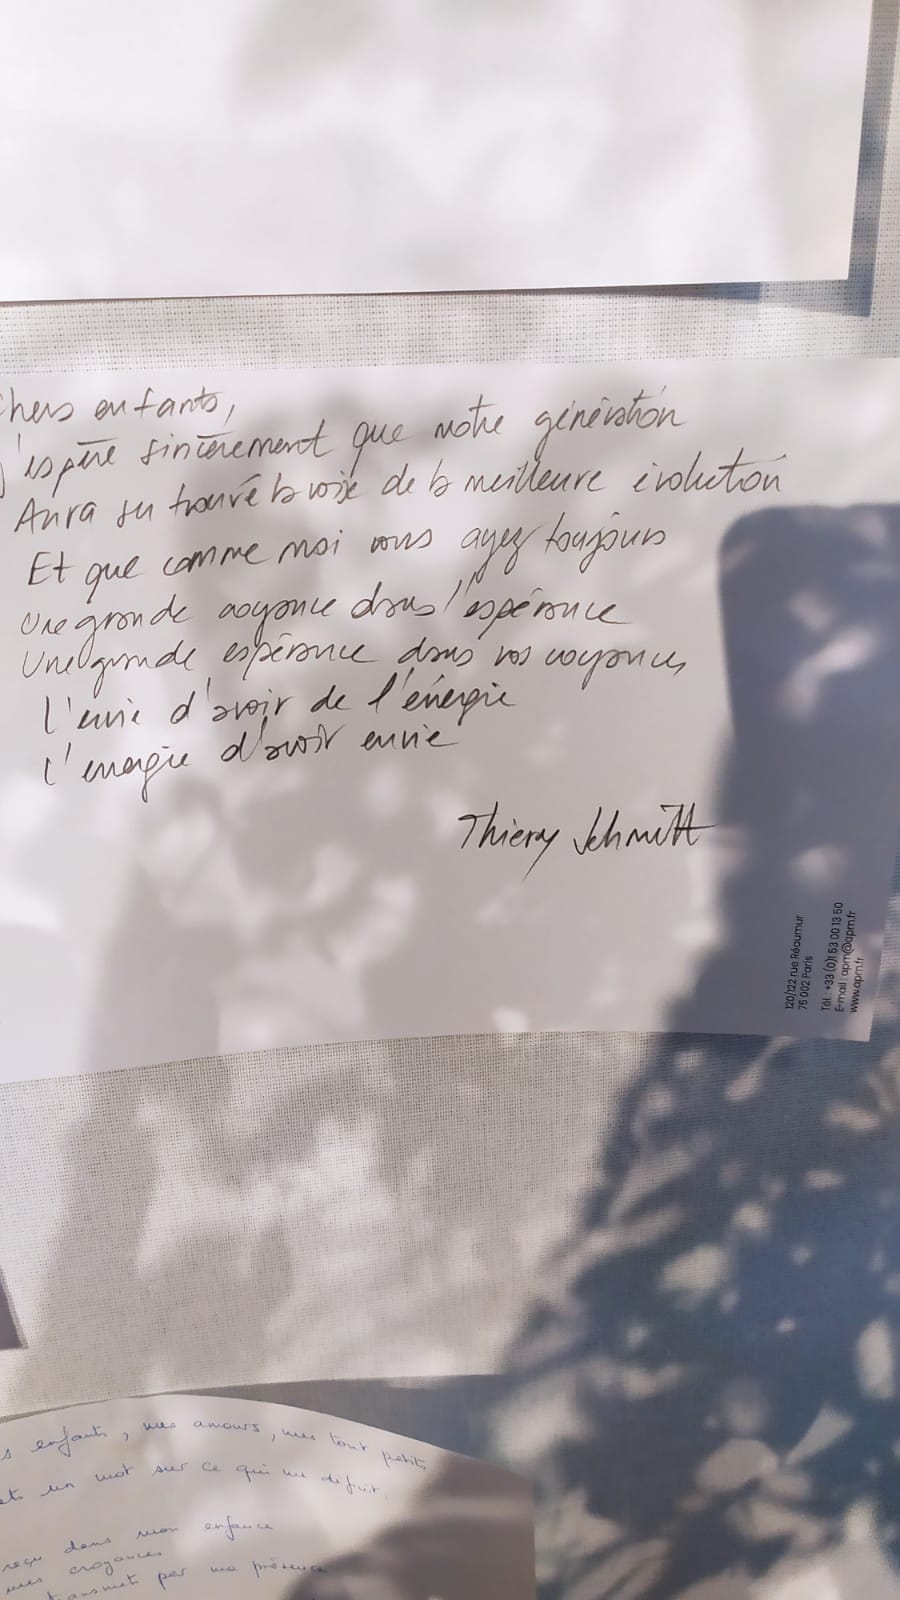 Chers enfants,
J'espère sincèrement que notre génération
Aura su trouvé la voie de la meilleure évolution
Et que comme moi vous ayez toujours
Une grande croyance dans l'espérance
Une grande espérance dans vos croyances,
L'envie d'avoir de l'énergie
L'energie d'avoir envie
Thierry Schmitt
120/122 rue Réaumur
75 002 Paris
Tél : +33 (0)1 53 00 13 50
E-mail : apm@apm.fr
www.apm.fr
enfants, mes amours, mes tout petits
un mot sur ce qui me définit,
reçu dans mon enfance
mes croyances
transmets par ma présence